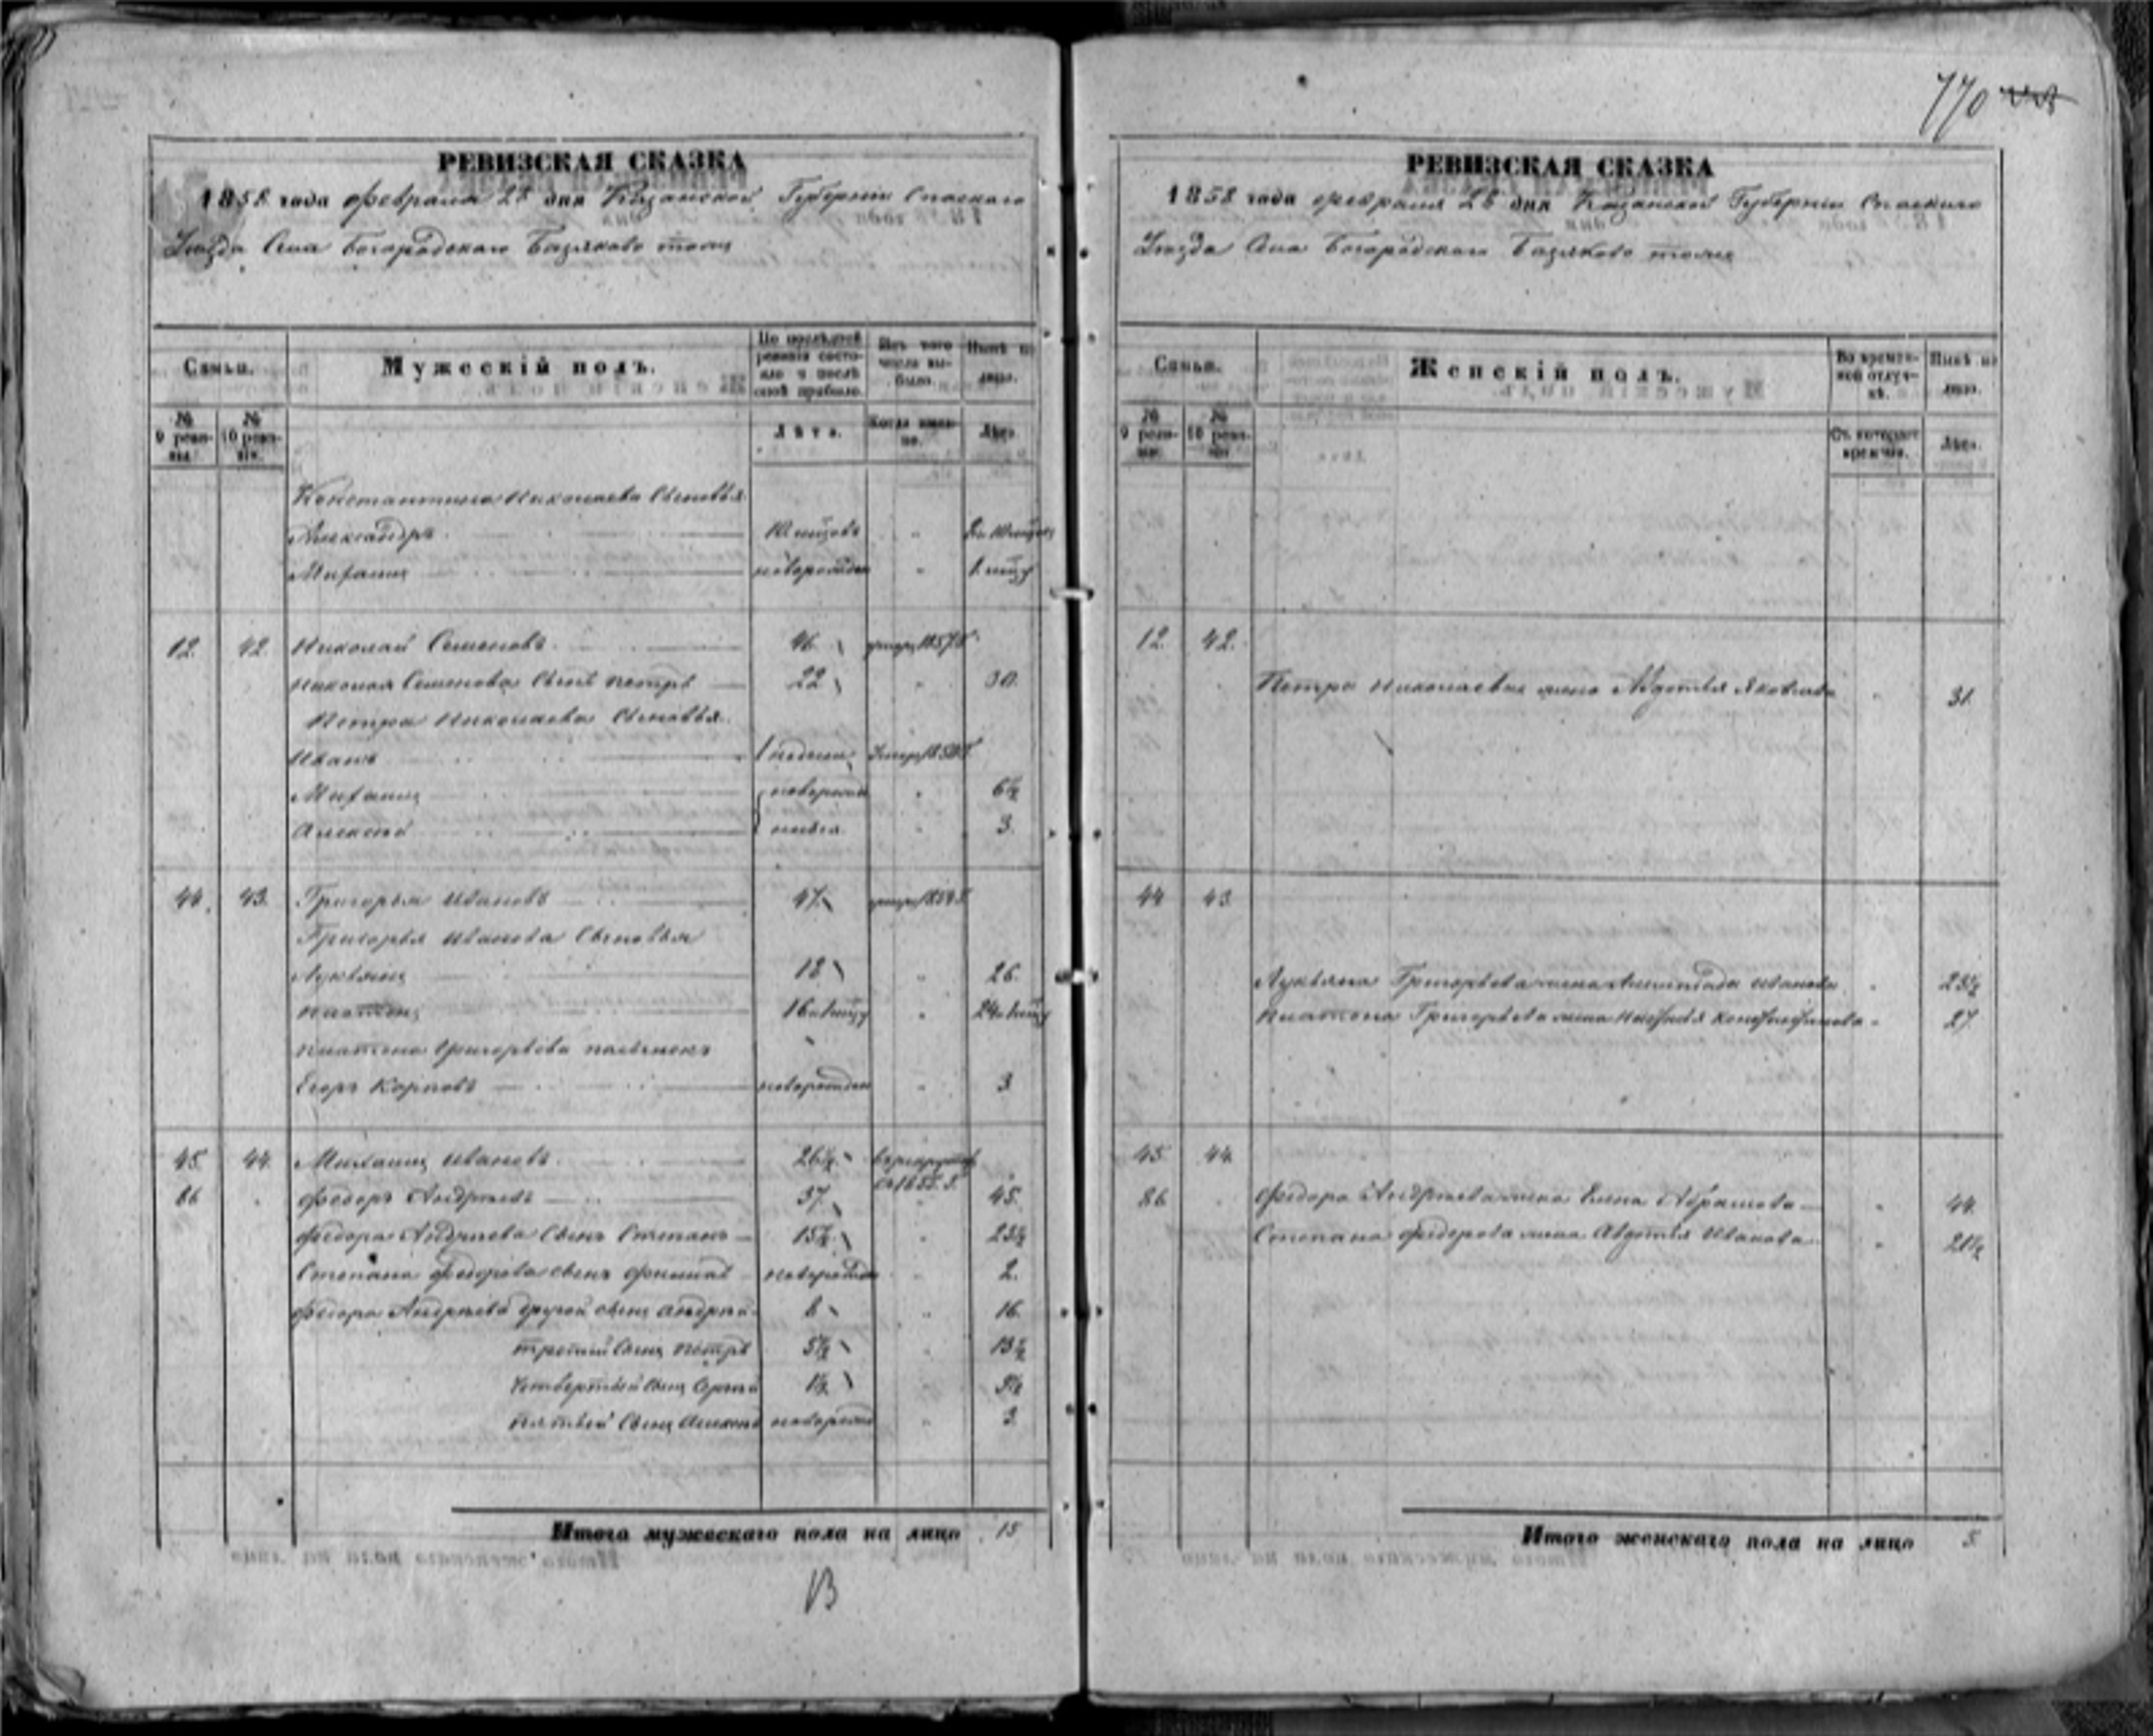 770
РЕВИЗСКАЯ СКАЗКА
1858 года февраля 28 дня Казанской Губерніи Спаскаго
Уѣзда Села Богородскаго Базяково тожъ
Семьи.
Мужескій полъ.
По послѣдней ревизіи состояло и послѣ оной прибыло.
Изъ того числа выбыло.
Нынѣ на лицо.
№ 9 ревизіи.
№ 10 ревизіи.
Лѣта.
Когда именно.
Лѣта.
Константина Николаева сыновья
Александръ
Михаилъ новорожден
12. 42. Николай Семеновъ 46 умеръ 1857 г.
Николая Семенова сынъ Петръ 22 " 30.
Петра Николаева сыновья
Иванъ недели
Михаилъ новорожден " 6½
Алексѣй " 3.
44. 43. Григорья Ивановъ 47
Григорья Иванова сыновья
Лукьянъ 18 " 26.
Платонъ
Платона Григорьева пасынокъ
Егоръ Карповъ новорожден " 3
45. 44. Михаилъ Ивановъ 26½
86 Федоръ Андреевъ 37 " 45.
Федора Андреева сынъ Степанъ 15½ " 23½
Степана Федорова сынъ новорожден " 2.
Федора Андреева другой сынъ Андрей 8 " 16
третий сынъ Петръ 5½ " 13½
четвертый сынъ Сергей 1½ " 9½
пятый сынъ новорожден " 3.
Итого мужескаго пола на лицо 15
РЕВИЗСКАЯ СКАЗКА
1858 года февраля 28 дня Казанской Губерніи Спаскаго
Уѣзда Села Богородскаго Базяково тожъ
Семьи.
Женскій полъ.
Во временной отлучкѣ.
Нынѣ на лицо.
№ 9 ревизіи.
№ 10 ревизіи.
Съ котораго времени.
Лѣта.
12. 42.
Петра Николаева жена Авдотья Яковлева " 31.
44 43
Лукьяна Григорьева жена Иванова " 23½
Платона Григорьева жена " 27.
45 44
86 Федора Андреева жена Елена Абрамова " 44.
Степана Федорова жена Авдотья Иванова " 21½
Итого женскаго пола на лицо 5